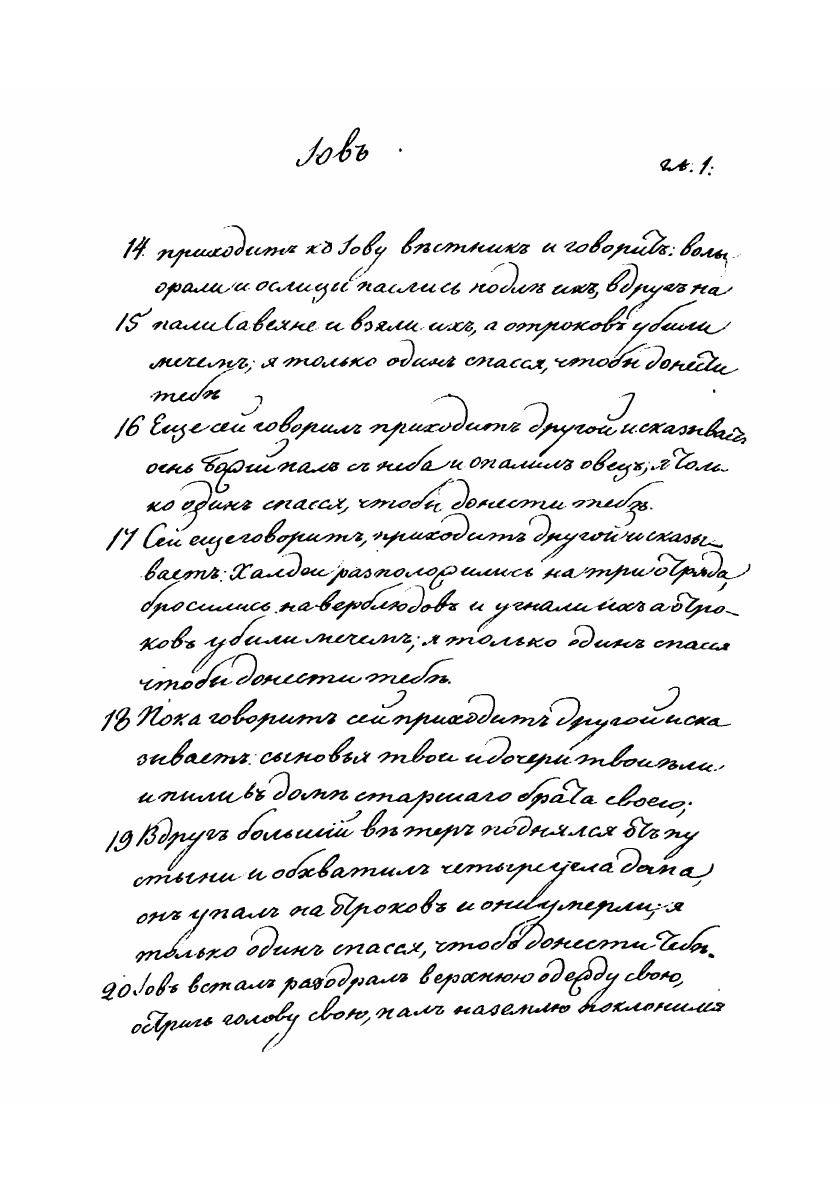 Іовъ
гл. 1.
14 приходитъ къ Іову вѣстникъ и говоритъ: волы
орали и ослицы паслись подлѣ ихъ, вдругъ на
15 пали Савеяне и взяли ихъ, а отроковъ убили
мечемъ; я только одинъ спасся, чтобы донести
тебѣ
16 Еще сей говорилъ приходитъ другой и сказываетъ
огнь Божій палъ съ неба и опалилъ овецъ; я толь-
ко одинъ спасся, чтобы донести тебѣ.
17 Сей еще говоритъ, приходитъ другой и сказы-
ваетъ: Халдеи разположились на три отряда,
бросились на верблюдовъ и угнали ихъ а отро-
ковъ убили мечемъ; я только одинъ спасся
чтобы донести тебѣ.
18 Пока говоритъ сей приходитъ другой и ска
зываетъ: сыновья твои и дочери твои ѣли
и пили въ домѣ старшаго брата своего;
19 Вдругъ большій вѣтеръ поднялся отъ пу
стыни и обхватилъ четыре угла дома,
онъ упалъ на отроковъ и они умерли; я
только одинъ спасся, чтобъ донести тебѣ.
20 Іовъ всталъ разодралъ верхнюю одежду свою,
остригъ голову свою, палъ на землю поклонился